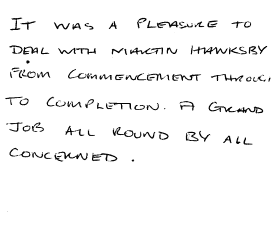 IT WAS A PLEASURE TO
DEAL WITH MARTIN HAWKSBY
FROM COMMENCEMENT THROUG
TO COMPLETION. A GRAND
JOB ALL ROUND BY ALL
CONCERNED.